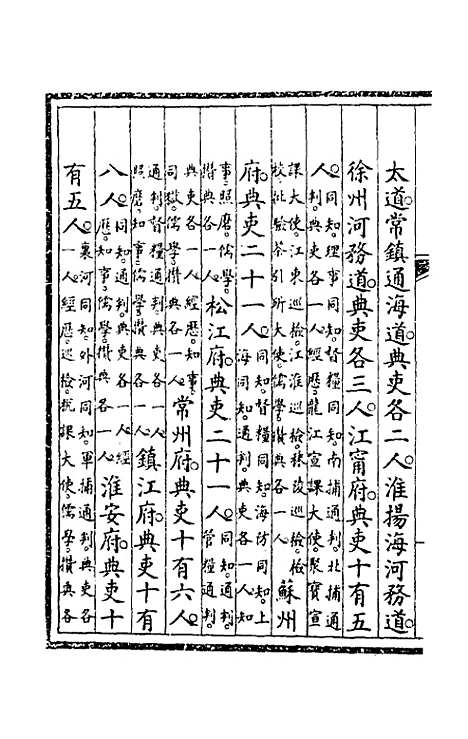 太道。常鎮通海道。典吏各二人。淮揚海河務道。
徐州河務道。典吏各三人。江甯府。典吏十有五
人。同知。理事同知。督糧同知。南捕通判。北捕通
判。典吏各一人。經歷。龍江宣課大使。聚寶宣
課大使。江東巡檢。江淮巡檢。秣陵巡檢。檢
校。批驗茶引所大使。儒學。攢典各一人。蘇州
府。典吏二十一人。同知。督糧同知。海防同知。上
海同知。通判。典吏各一人。知
事。照磨。儒學。
攢典各一人。松江府。典吏二十一人。同知。通判。
管糧通判。
典吏各一人。經歷。知事。
司獄。儒學。攢典各一人。常州府。典吏十有六人。
通判。督糧通判。典吏各一人。
照磨。知事。儒學。攢典各一人。鎮江府。典吏十有
八人。同知。通判。典吏各一人。經
歷。知事。儒學。攢典各一人。淮安府。典吏十
有五人。裏河同知。外河同知。軍捕通判。典吏各
一人。經歷。巡檢。課大使。儒學。攢典各